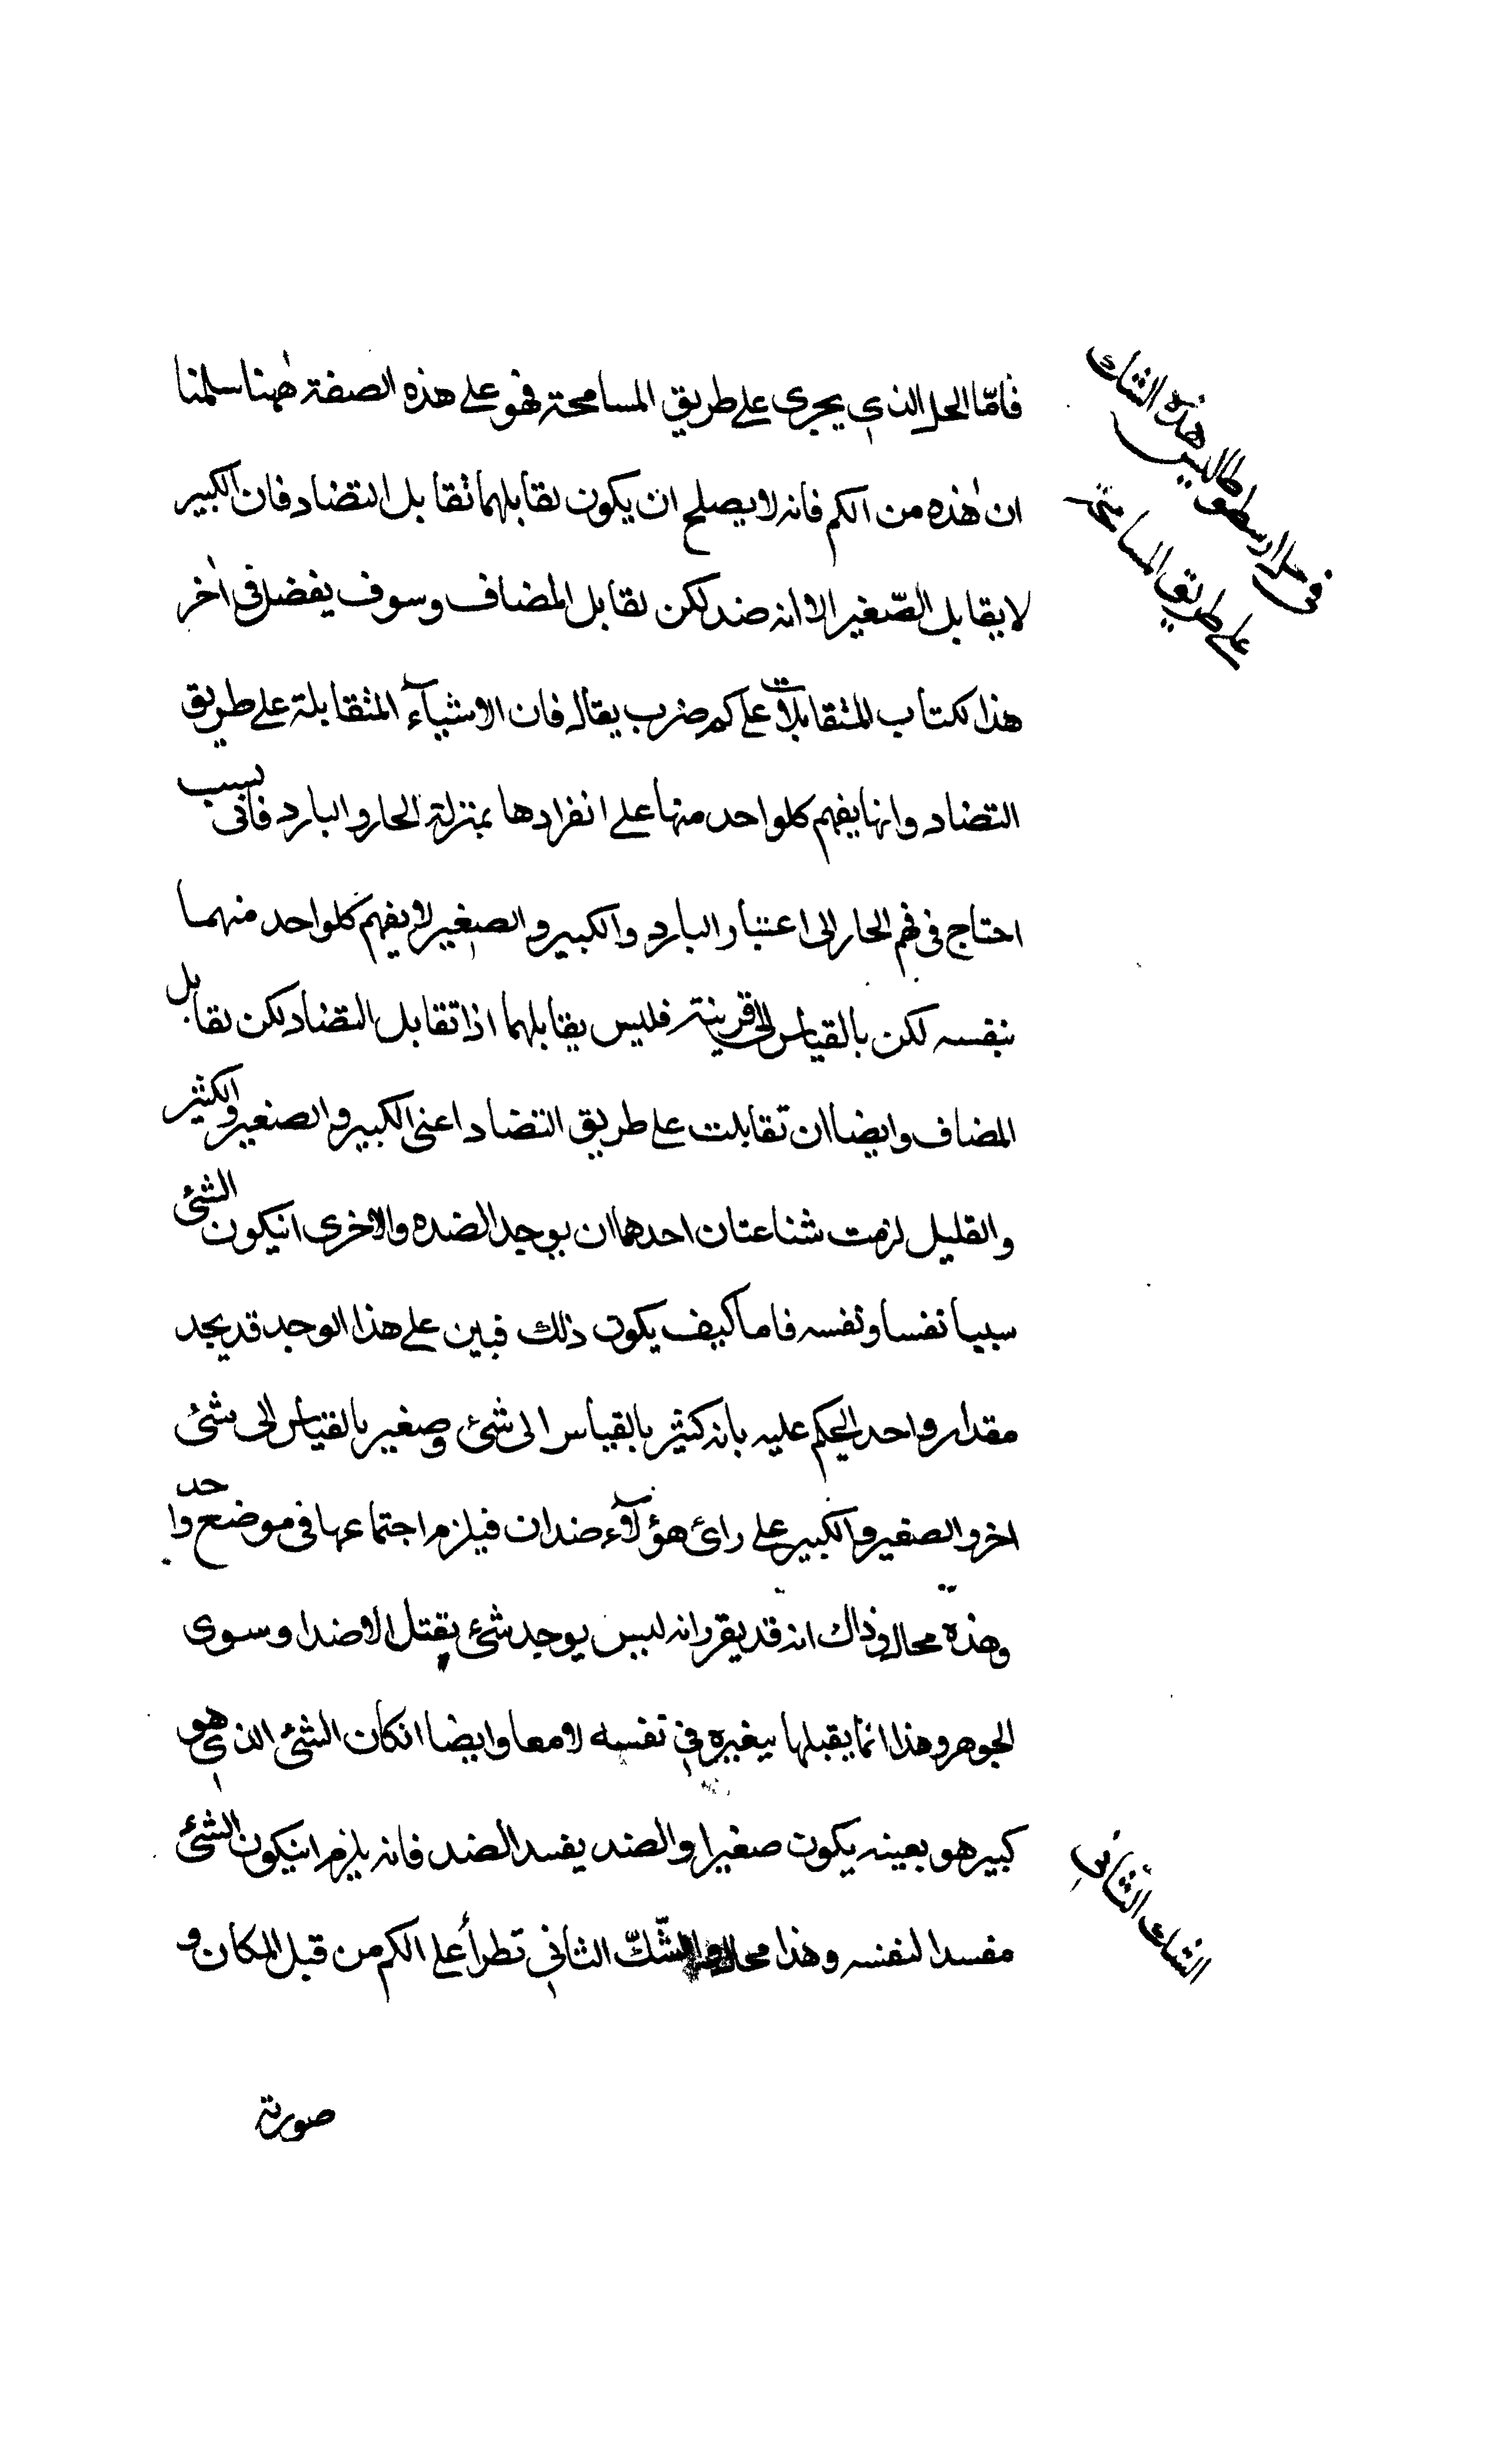 فامّا الحل الذي يجرى على طريق المسامحة فهو على هذه الصفة ههنا سلمنا
ان هذه من الكم فانه لا يصلح ان يكون تقابلهما تقابل التضاد فان الكبير
لا يقابل الصّغير الا انه ضد لكن تقابل المضاف وسوف يفضل فى اخر
هذا لكتاب المتقابلات على كم ضرب يقال فان الاشياء المتقابلة على طريق
التضاد وانها يفهم كلواحد منها على انفرادها بمنزلة الحار والبارد فانى بسبب
احتاج فى فهم الحار الى اعتبار البارد والكبير والصغير لا يفهم كلواحد منهما
بنفسه لكن بالقياس الى قرينته فليس يقابلهما اذا تقابل التضاد لكن تقابل
المضاف وايضا ان تقابلت على طريق التضاد اعنى الكبير والصغير والكثير
والقليل لزمت شناعتان احدهما ان يوجد الضده والاخرى انيكون الشئ
سببا نفسا ونفسه فاما كيف يكون ذلك فبين على هذا الوجه قد يجد
مقدار واحد ليحكم عليه بانه كثير بالقياس الى شئ وصغير بالقياس الى شئ
اخر والصغير والكبير على رائ هؤلاء ضدان فيلزم اجتماعها فى موضع واحد
وهذه محال وذاك انه قد يقر انه ليس يوجد شئ يقتل الاضداد سوى
الجوهر وهذا انما يقبلها بتغييره في نفسه لا معا وايضا انكان الشئ الذى هو
كبير هو بعينه يكون صغيرا والضد يفسد الضد فانه يلزم انيكون الشئ
مفسدا لنفسه وهذا محال والشّكّ الثاني تطرأ على الكم من قبل المكان و
صورته
فى حل ارسطوطاليس هذه الشك
على طريق المسامحة
الشك الثانى